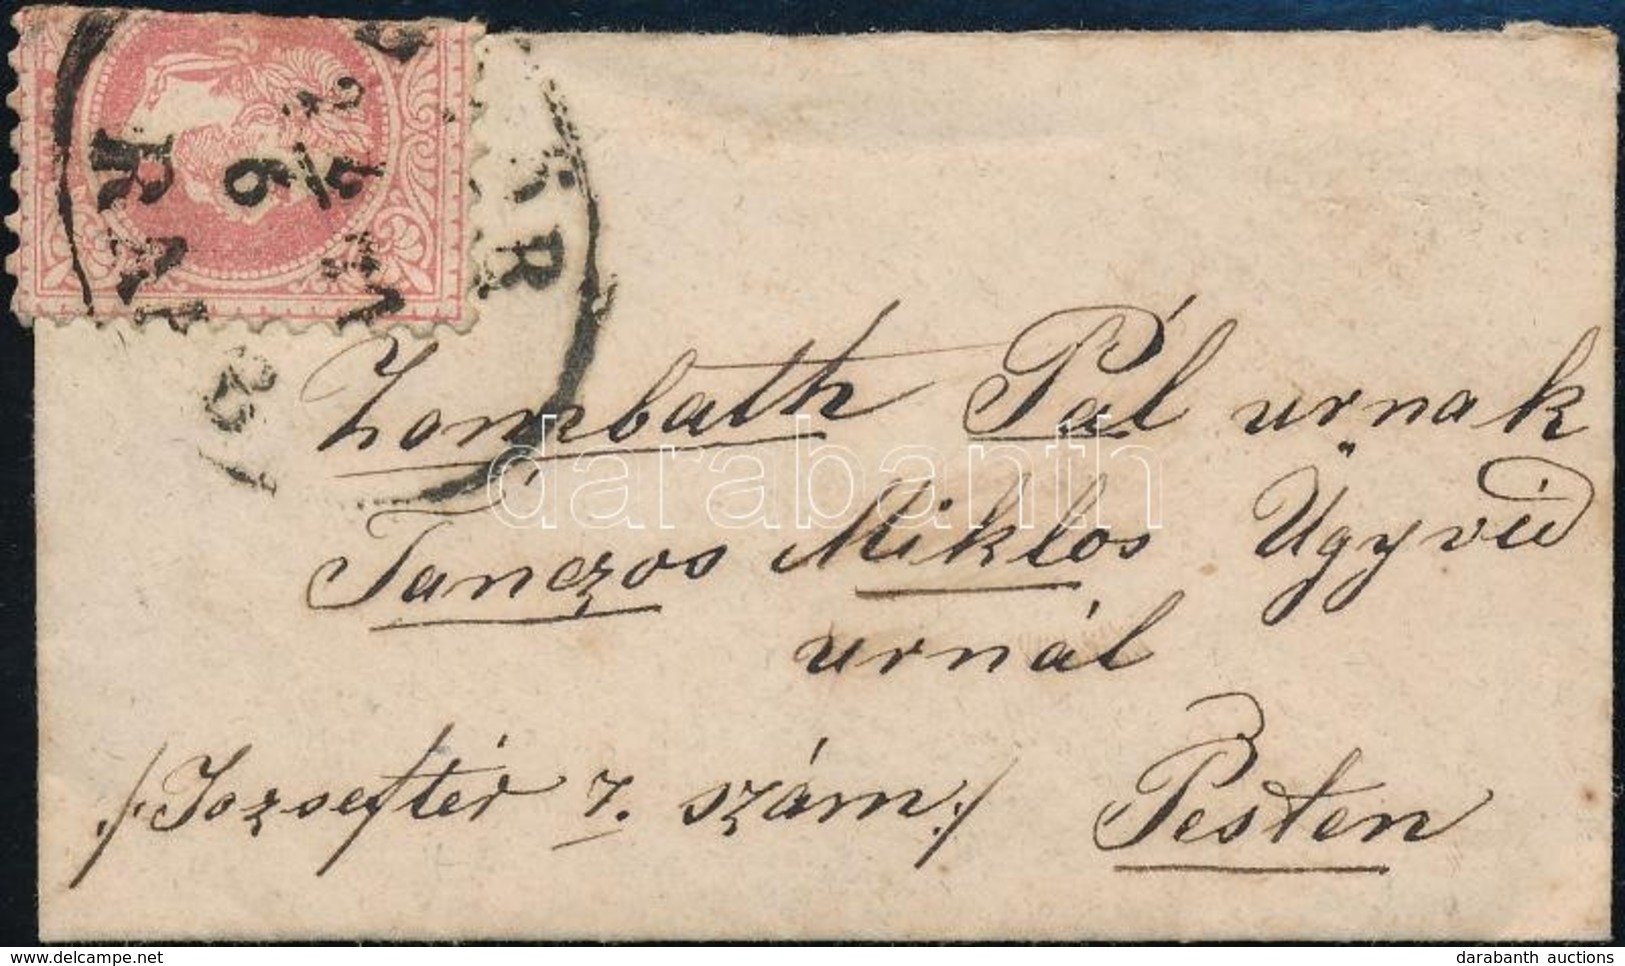 Zombath Pál urnak
Tánczos Miklos Ügyvéd
urnál
/: Jozseftér 7. szám :/ Pesten
darabanth
delcampe.net
darabanth auctions